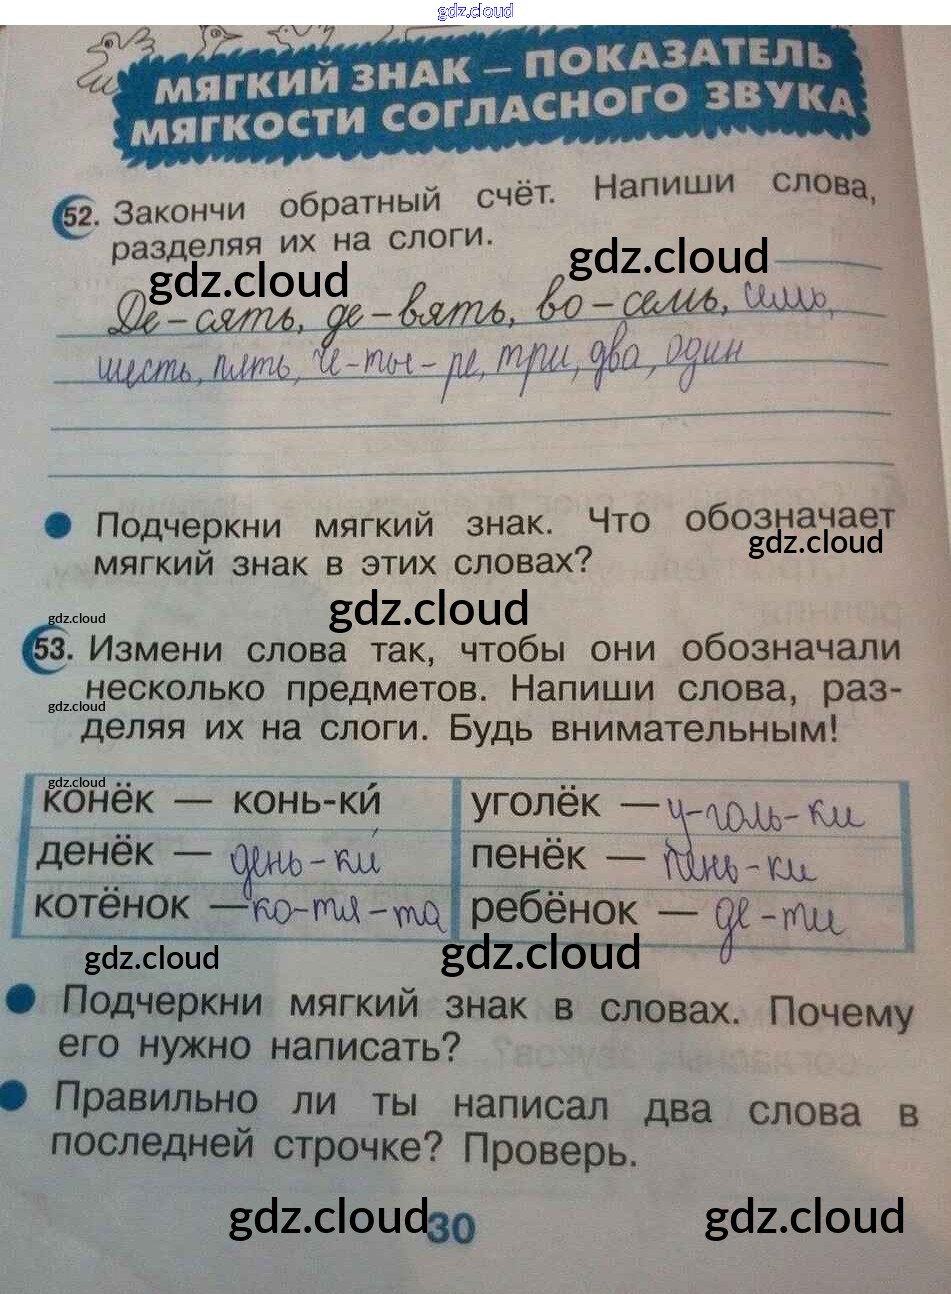 gdz.cloud
МЯГКИЙ ЗНАК – ПОКАЗАТЕЛЬ
МЯГКОСТИ СОГЛАСНОГО ЗВУКА
52. Закончи обратный счёт. Напиши слова,
разделяя их на слоги.
gdz.cloud
gdz.cloud
Де-сять, де-вять, во-семь, семь,
шесть, пять, че-ты-ре, три, два, один
gdz.cloud
Подчеркни мягкий знак. Что обозначает
мягкий знак в этих словах?
gdz.cloud
gdz.cloud
gdz.cloud
53. Измени слова так, чтобы они обозначали
несколько предметов. Напиши слова, раз-
gdz.cloud
деляя их на слоги. Будь внимательным!
gdz.cloud
конёк — конь-ки́ уголёк — у-голь-ки
денёк — день-ки́ пенёк — пень-ки
котёнок — ко-тя-та ребёнок — де-ти
gdz.cloud
gdz.cloud
Подчеркни мягкий знак в словах. Почему
его нужно написать?
Правильно ли ты написал два слова в
последней строчке? Проверь.
gdz.cloud
30
gdz.cloud